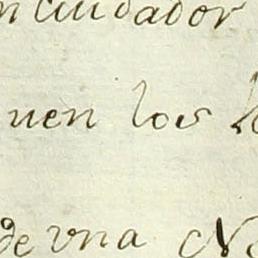 n cuidador
uen los
de vna